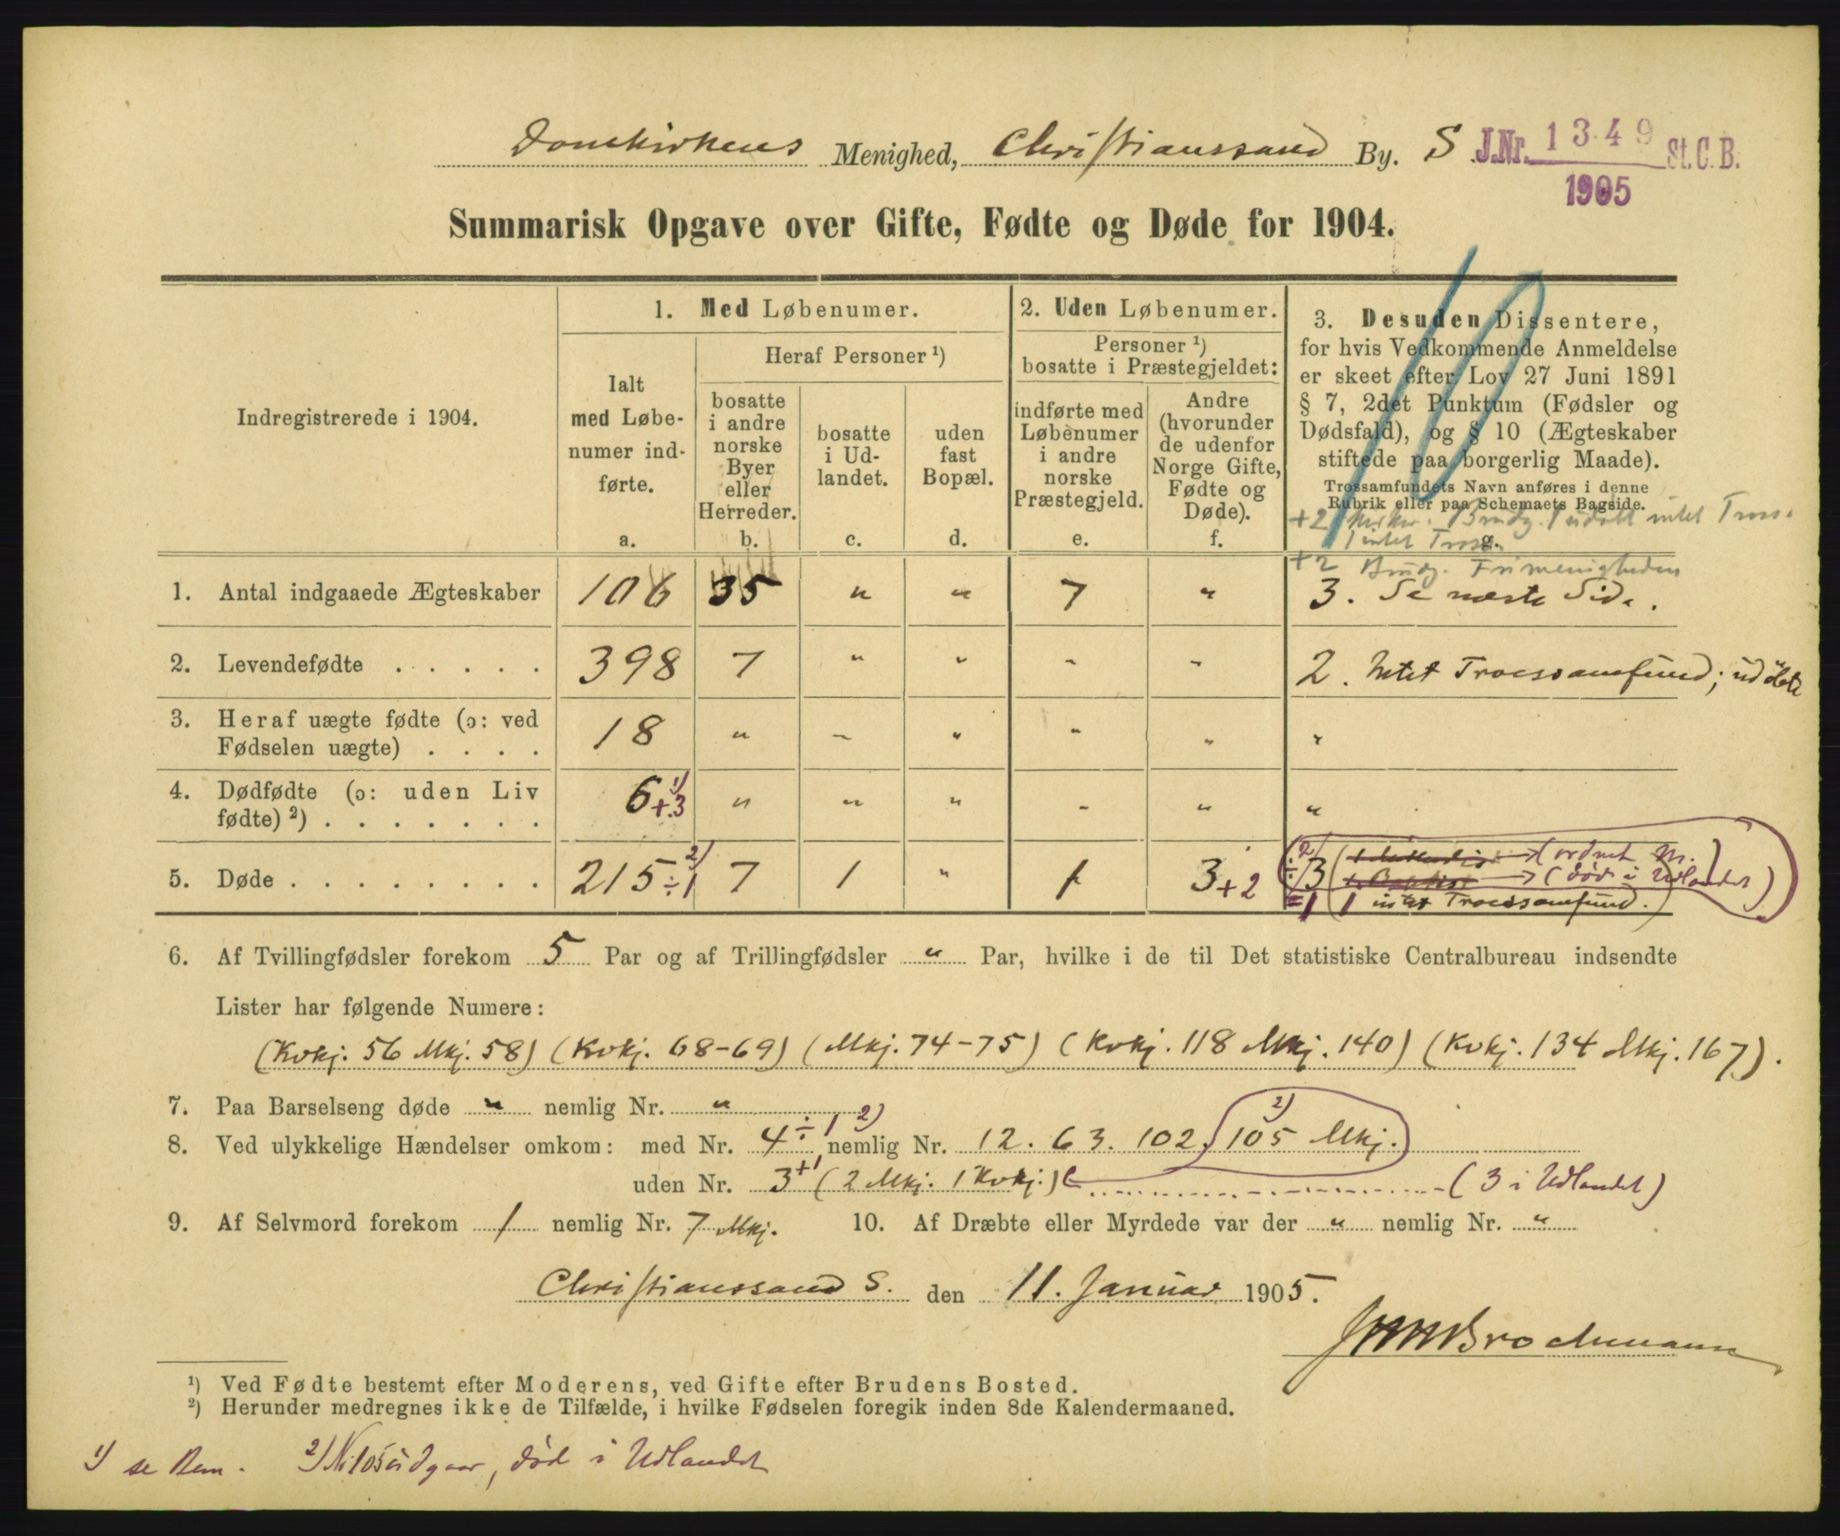 Domkirkens Menighed, Christianssand By. S J.Nr. 1349 St.C.B.
1905
Summarisk Opgave over Gifte, Fødte og Døde for 1904.
Indregistrerede i 1904.
1. Med Løbenumer.
Ialt
med Løbe-
numer ind-
førte.
a.
Heraf Personer ¹)
bosatte
i andre
norske
Byer
eller
Herreder.
b.
bosatte
i Ud-
landet.
c.
uden
fast
Bopæl.
d.
2. Uden Løbenumer.
Personer ¹)
bosatte i Præstegjeldet:
indførte med
Løbenumer
i andre
norske
Præstegjeld.
e.
Andre
(hvorunder
de udenfor
Norge Gifte,
Fødte og
Døde).
f.
10
3. Desuden Dissentere,
for hvis Vedkommende Anmeldelse
er skeet efter Lov 27 Juni 1891
§ 7, 2det Punktum (Fødsler og
Dødsfald), og § 10 (Ægteskaber
stiftede paa borgerlig Maade).
Trossamfundets Navn anføres i denne
Rubrik eller paa Schemaets Bagside.
+2 Brudg. 1 udølt intet Tross.
1 intet Tross. g.
+2 Brudg. Frimenigheden
1. Antal indgaaede Ægteskaber 106 35 " " 7 " 3. Se næste Side.
2. Levendefødte . . . . . 398 7 " " " " 2. Intet Troessamfund; udøbte
3. Heraf uægte fødte (ɔ: ved
Fødselen uægte) . . . . 18 " " " " " "
4. Dødfødte (ɔ: uden Liv
fødte) ²) . . . . . . . 6 +3 ¹) " " " " " "
5. Døde . . . . . . . . . 215 ÷1 ²) 7 1 " 1 3 +2 ÷ 3 (ordnet M.)
(død i Udlandet)
=1 (1 intet Troessamfund.)
6. Af Tvillingfødsler forekom 5 Par og af Trillingfødsler " Par, hvilke i de til Det statistiske Centralbureau indsendte
Lister har følgende Numere:
(Kvkj. 56 Mkj. 58) (Kvkj. 68-69) (Mkj. 74-75) (Kvkj. 118 Mkj. 140) (Kvkj. 134 Mkj. 167).
7. Paa Barselseng døde " nemlig Nr. "
8. Ved ulykkelige Hændelser omkom: med Nr. 4 ÷1 ²) nemlig Nr. 12. 63. 102. 105 ²) Mkj.
uden Nr. 3 +1 (2 Mkj. 1 Kvkj.) (3 i Udlandet)
9. Af Selvmord forekom 1 nemlig Nr. 7 Mkj. 10. Af Dræbte eller Myrdede var der " nemlig Nr. "
Christianssand S. den 11. Januar 1905.
Brochmann
¹) Ved Fødte bestemt efter Moderens, ved Gifte efter Brudens Bosted.
²) Herunder medregnes ikke de Tilfælde, i hvilke Fødselen foregik inden 8de Kalendermaaned.
¹) se Bem. ²) N. 105 udgaar, død i Udlandet